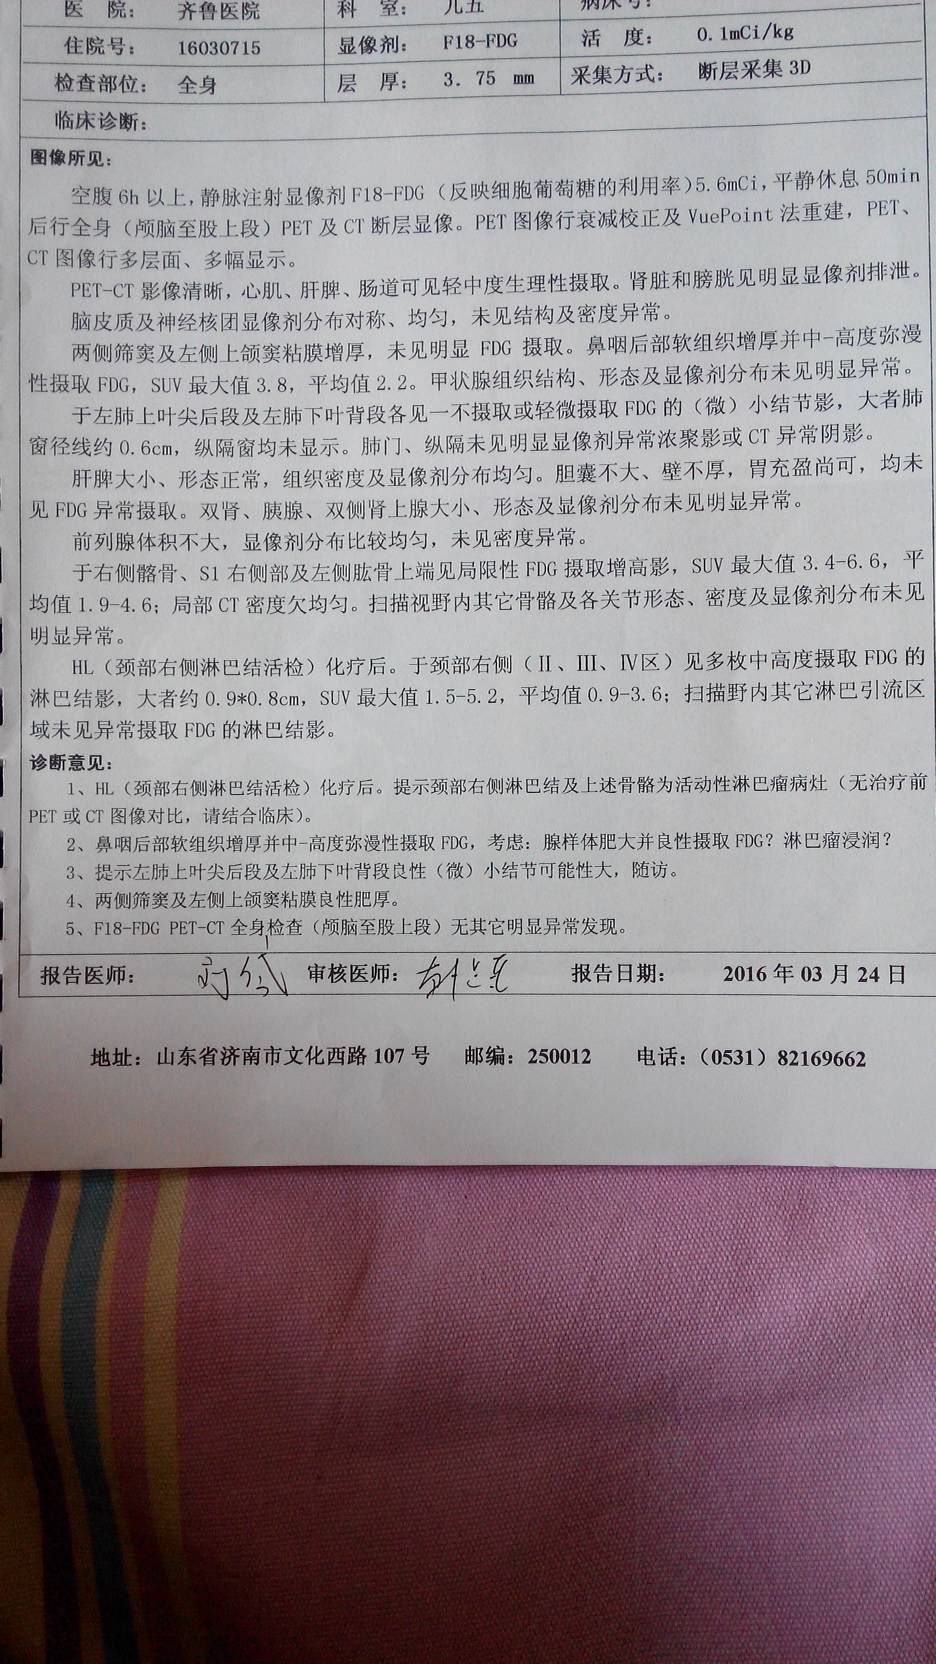 医 院： 齐鲁医院 科 室： 儿五 病床号：
住院号： 16030715 显像剂： F18-FDG 活 度： 0.1mCi/kg
检查部位： 全身 层 厚： 3. 75 mm 采集方式： 断层采集 3D
临床诊断：
图像所见：
空腹 6h 以上，静脉注射显像剂 F18-FDG（反映细胞葡萄糖的利用率）5.6mCi，平静休息 50min
后行全身（颅脑至股上段）PET 及 CT 断层显像。PET 图像行衰减校正及 VuePoint 法重建，PET、
CT 图像行多层面、多幅显示。
PET-CT 影像清晰，心肌、肝脾、肠道可见轻中度生理性摄取。肾脏和膀胱见明显显像剂排泄。
脑皮质及神经核团显像剂分布对称、均匀，未见结构及密度异常。
两侧筛窦及左侧上颌窦粘膜增厚，未见明显 FDG 摄取。鼻咽后部软组织增厚并中-高度弥漫
性摄取 FDG，SUV 最大值 3.8，平均值 2.2。甲状腺组织结构、形态及显像剂分布未见明显异常。
于左肺上叶尖后段及左肺下叶背段各见一不摄取或轻微摄取 FDG 的（微）小结节影，大者肺
窗径线约 0.6cm，纵隔窗均未显示。肺门、纵隔未见明显显像剂异常浓聚影或 CT 异常阴影。
肝脾大小、形态正常，组织密度及显像剂分布均匀。胆囊不大、壁不厚，胃充盈尚可，均未
见 FDG 异常摄取。双肾、胰腺、双侧肾上腺大小、形态及显像剂分布未见明显异常。
前列腺体积不大，显像剂分布比较均匀，未见密度异常。
于右侧髂骨、S1 右侧部及左侧肱骨上端见局限性 FDG 摄取增高影，SUV 最大值 3.4-6.6，平
均值 1.9-4.6；局部 CT 密度欠均匀。扫描视野内其它骨骼及各关节形态、密度及显像剂分布未见
明显异常。
HL（颈部右侧淋巴结活检）化疗后。于颈部右侧（Ⅱ、Ⅲ、Ⅳ区）见多枚中高度摄取 FDG 的
淋巴结影，大者约 0.9*0.8cm，SUV 最大值 1.5-5.2，平均值 0.9-3.6；扫描野内其它淋巴引流区
域未见异常摄取 FDG 的淋巴结影。
诊断意见：
1、HL（颈部右侧淋巴结活检）化疗后。提示颈部右侧淋巴结及上述骨骼为活动性淋巴瘤病灶（无治疗前
PET 或 CT 图像对比，请结合临床）。
2、鼻咽后部软组织增厚并中-高度弥漫性摄取 FDG，考虑：腺样体肥大并良性摄取 FDG？淋巴瘤浸润？
3、提示左肺上叶尖后段及左肺下叶背段良性（微）小结节可能性大，随访。
4、两侧筛窦及左侧上颌窦粘膜良性肥厚。
5、F18-FDG PET-CT 全身检查（颅脑至股上段）无其它明显异常发现。
报告医师： 审核医师： 报告日期： 2016 年 03 月 24 日
地址：山东省济南市文化西路 107 号 邮编：250012 电话：（0531）82169662